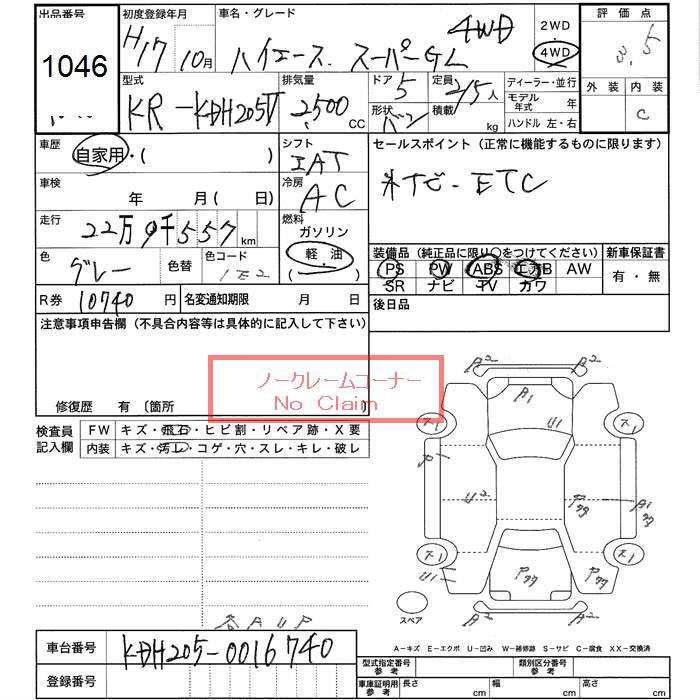 出品番号
1046
初度登録年月
H17 10月
車名・グレード
ハイエース スーパーGL 4WD
2WD
4WD
評価点
3.5
外装 内装
C
型式
KR-KDH205V
排気量
2,500 CC
ドア
5
定員
2/5人
ディーラー・並行
モデル年式 年
ハンドル 左・右
形状
バン
積載
kg
車歴
自家用・( )
シフト
IAT
車検
年 月( 日)
冷房
AC
走行
22万9千557km
燃料
ガソリン
軽油
( )
色
グレー
色替
色コード
1E2
R券 10740 円
名変通知期限 月 日
セールスポイント(正常に機能するものに限ります)
ナビ-ETC
装備品(純正品に限り○をつけてください)
新車保証書
PS PW ABS エアB AW
SR ナビ TV カワ
有・無
後日品
注意事項申告欄(不具合内容等は具体的に記入して下さい)
ノークレームコーナー
No Claim
修復歴 有 〔箇所 〕
検査員記入欄
FW キズ・飛石・ヒビ割・リペア跡・X要
内装 キズ・汚レ・コゲ・穴・スレ・キレ・破レ
A2 A2
A1
U1
ス1 ス1
P1
U2
Pアア
A1
アア
ス1 ス1
U1
Pアア
Pアア
A2 A2
スペア
A-キズ E-エクボ U-凹み W-補修跡 S-サビ C-腐食 XX-交換済
車台番号
KDH205-0016740
登録番号
型式指定番号 参考
類別区分番号 参考
車庫証明用 参考
長さ cm
幅 cm
高さ cm